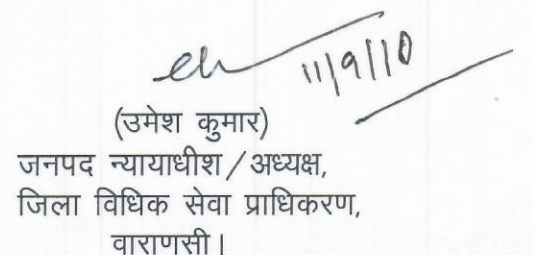 11/9/10
(उमेश कुमार)
जनपद न्यायाधीश/अध्यक्ष,
जिला विधिक सेवा प्राधिकरण,
वाराणसी।